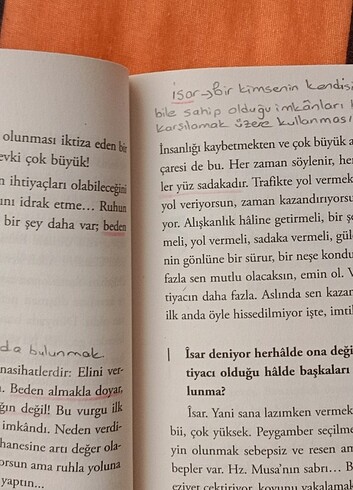 olunması iktiza eden bir
evki çok büyük!
n ihtiyaçları olabileceğini
ını idrak etme... Ruhun
bir şey daha var; beden
da bulunmak
nasihatlerdir: Elini ver-
. Beden almakla doyar,
ğın değil! Bu vurgu ilk
imkândı. Neden verdi-
hanesine artı değer ola-
orsun ama ruhla yoluna
yaptın...
İsar → bir kimsenin kendisi
bile sahip olduğu imkânları
karşılamak üzere kullanması
İnsanlığı kaybetmekten ve çok büyük a
çaresi de bu. Her zaman söylenir, her
ler yüz sadakadır. Trafikte yol vermek
yol veriyorsun, zaman kazandırıyorsun
yor. Alışkanlık hâline getirmeli, bir şe
meli, yol vermeli, sadaka vermeli, gül
nin gönlüne bir sürur, bir neşe kondu
fazla sen mutlu olacaksın, emin ol. V
tiyacın daha fazla. Aslında sen kazan
ilk anda öyle hissedilmiyor işte, imti
İsar deniyor herhâlde ona değil
tiyacı olduğu hâlde başkaları
lunma?
İsar. Yani sana lazımken vermek
bii, çok yüksek. Peygamber seçilme
yin olunmak sebepsiz ve resen am
bepler var. Hz. Musa'nın sabrı... B
eziyet çektiriyor, koyunu yakalamak